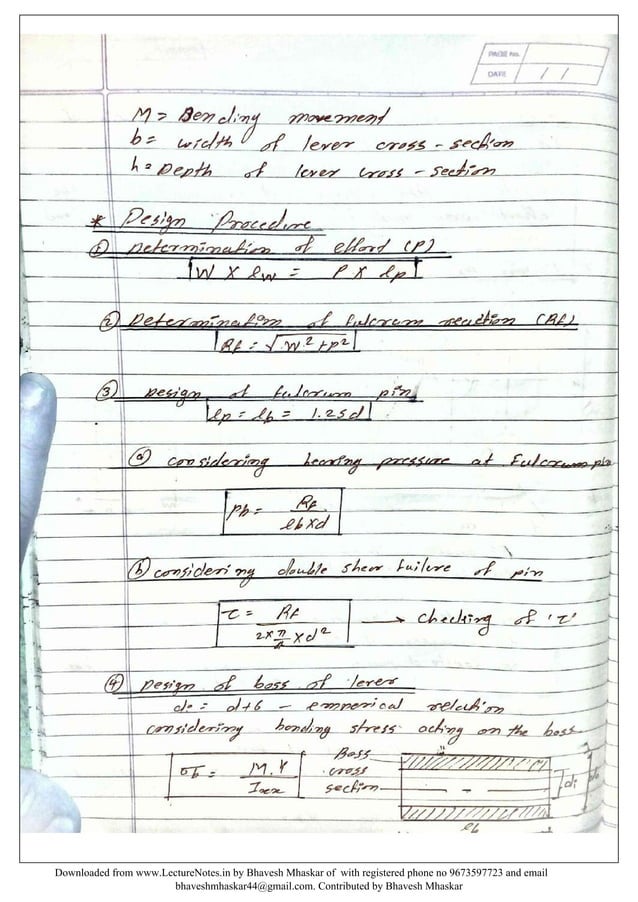 PAGE No.
DATE / /
M = Bending movement
b = width of lever cross-section
h = Depth of lever cross-section
* Design Procedure
① Determination of effort (P)
W × lw = P × lp
② Determination of fulcrum reaction (Rf)
Rf = √W²+P²
③ Design of fulcrum pin
lp = lb = 1.25d
ⓐ considering bearing pressure at Fulcrum pin
Pb = Rf / lb×d
ⓑ considering double shear failure of pin
τ = Rf / 2×π/4×d² → checking of 'τ'
④ Design of boss of lever
do = d+6 - emperical relation
considering bending stress acting on the boss
σb = M.Y / Ixx
Boss cross section
di
do
lb
Downloaded from www.LectureNotes.in by Bhavesh Mhaskar of with registered phone no 9673597723 and email
bhaveshmhaskar44@gmail.com. Contributed by Bhavesh Mhaskar